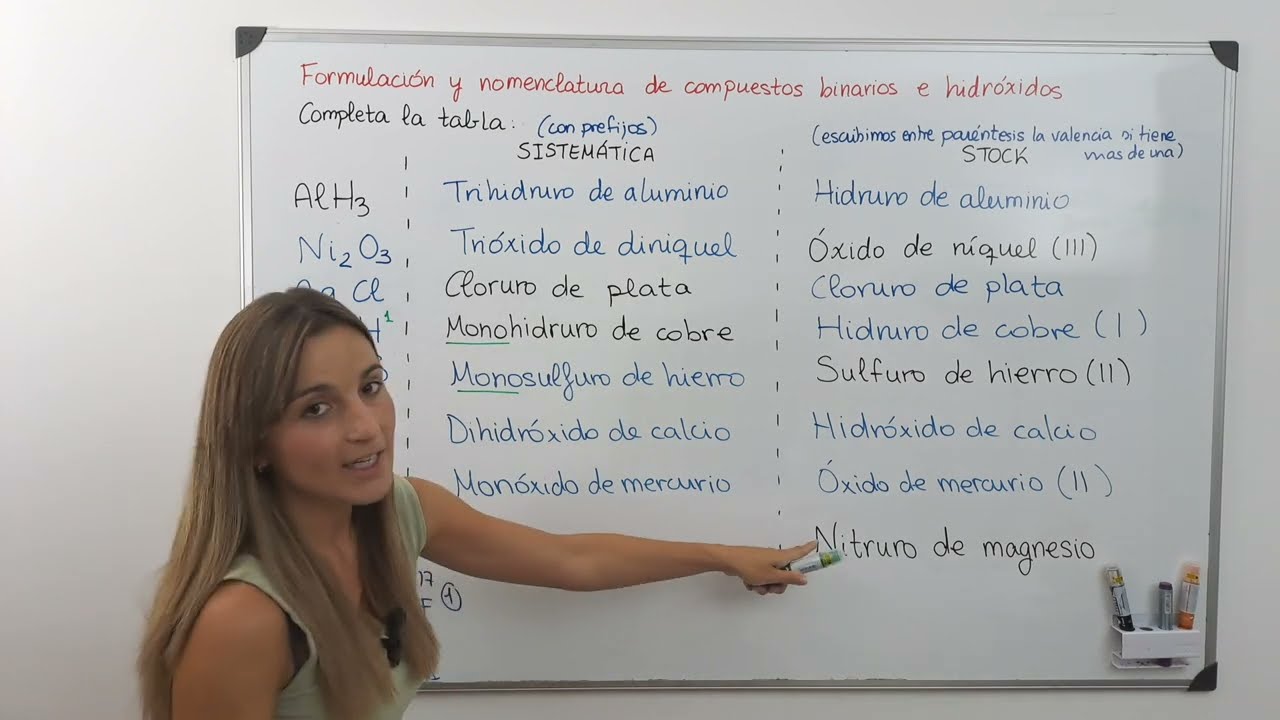 Formulación y nomenclatura de compuestos binarios e hidróxidos
Completa la tabla: (con prefijos) (escribimos entre paréntesis la valencia si tiene
SISTEMÁTICA STOCK mas de una)
AlH3 Trihidruro de aluminio Hidruro de aluminio
Ni2O3 Trióxido de diniquel Óxido de níquel (III)
Cl Cloruro de plata Cloruro de plata
H 1 Monohidruro de cobre Hidruro de cobre (I)
Monosulfuro de hierro Sulfuro de hierro (II)
Dihidróxido de calcio Hidróxido de calcio
Monóxido de mercurio Óxido de mercurio (II)
Nitruro de magnesio
17
F 1